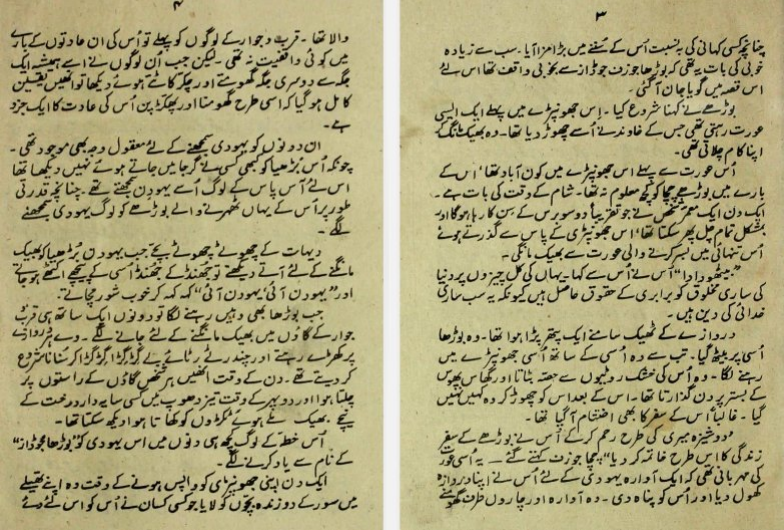 ۳
چنانچہ کسی کہانی کی بہ نسبت اُس کے سُننے میں بڑا مزا آیا۔ سب سے زیادہ
خوبی کی بات یہ تھی کہ بوڑھا جوزف جوڈاز سے بخوبی واقف تھا اس لئے
اس قصہ میں گویا جان آ گئی۔
بوڑھے نے کہنا شروع کیا۔ اِس جھونپڑے میں پہلے ایک ایسی
عورت رہتی تھی جس کے خاوند نے اُسے چھوڑ دیا تھا۔ وہ بھیک مانگ کر
اپنا کام چلاتی تھی۔
اُس عورت سے پہلے اس جھونپڑے میں کون آباد تھا، اس کے
بارے میں بوڑھے چچا کو کچھ معلوم نہ تھا۔ شام کے وقت کی بات ہے۔
ایک دن ایک معمر شخص نے جو تقریباً دو سو برس کے سِن کا رہا ہوگا اور
بمشکل تمام چل پھر سکتا تھا، اس جھونپڑی کے پاس سے گذرتے ہوئے
اُس تنہائی میں بسر کرنے والی عورت سے بھیک مانگی۔
”بیٹھو دادا“ اُس نے اُس سے کہا۔ یہاں کی کُل چیزوں پر دنیا
کی ساری مخلوق کو برابری کے حقوق حاصل ہیں کیونکہ یہ سب ساری
خدائی کی دین ہیں۔
دروازے کے ٹھیک سامنے ایک پتھر پڑا ہوا تھا۔ وہ بوڑھا
اُسی پر بیٹھ گیا۔ تب سے وہ اُسی کے ساتھ اُسی جھونپڑے میں
رہنے لگا۔ وہ اُس کی خشک روٹیوں سے حصّہ بٹاتا اور گھاس پھوس
کے بستر پر دن گذارتا تھا۔ اس کے بعد اس کو چھوڑ کر وہ کہیں نہیں
گیا۔ غالباً اس کے سفر کا بھی اختتام آ گیا تھا۔
”دوشیزہ میری کی طرح رحم کر کے اُس نے بوڑھے کے سفرِ
زندگی کا اس طرح خاتمہ کر دیا“ چچا جوزف کہتے گئے — یہ اُسی عورت
کی مہربانی تھی کہ ایک آوارہ یہودی کے لئے اُس نے اپنا دروازہ
کھول دیا اور اُس کو پناہ دی۔ وہ آوارہ اور چاروں طرف گھومنے
۴
والا تھا۔ قرب و جوار کے لوگوں کو پہلے تو اُس کی ان عادتوں کے بارے
میں کوئی واقفیت نہ تھی۔ لیکن جب اُن لوگوں نے اسے ہمیشہ ایک
جگہ سے دوسری جگہ گھومتے اور چکر کاٹتے ہوئے دیکھا تو انھیں یقین
کامل ہو گیا کہ اسی طرح گھومنا اور پھکڑپن اُس کی عادت کا ایک جزو
ہے۔
ان دونوں کو یہودی سمجھنے کے لئے معقول وجہ بھی موجود تھی۔
چونکہ اُس بڑھیا کو کبھی کسی نے گرجا میں جاتے ہوئے نہیں دیکھا تھا
اس لئے اُس پاس کے لوگ اُسے یہودن سمجھتے تھے۔ چنانچہ قدرتی
طور پر اُس کے یہاں ٹھہرنے والے بوڑھے کو لوگ یہودی سمجھنے
لگے۔
دیہات کے چھوٹے چھوٹے بچے جب یہودن بڑھیا کو بھیک
مانگنے کے لئے آتے دیکھتے تو جھنڈ کے جھنڈ اُسی کے پیچھے اکٹھے ہو جاتے
اور ”یہودن آئی، یہودن آئی“ کہہ کہہ کر خوب شور مچاتے۔
جب بوڑھا بھی وہیں رہنے لگا تو دونوں ایک ساتھ ہی قرب
جوار کے گاؤں میں بھیک مانگنے کے لئے جانے لگے۔ وے ہر دروازے
پر کھڑے رہتے اور چند رٹے رٹائے بے گڑگڑا گڑگڑا کر سنانا شروع
کر دیتے تھے۔ دن کے وقت انھیں ہر شخص گاؤں کے راستوں پر
چلتا ہوا اور دوپہر کے وقت تیز دھوپ میں کسی سایہ دار درخت کے
نیچے بھیک ملے ہوئے ٹکڑوں کو کھاتا ہوا دیکھ سکتا تھا۔
اُس خطّے کے لوگ کچھ ہی دنوں میں اس یہودی کو ”بوڑھا جوڈاز“
کے نام سے یاد کرنے لگے۔
ایک دن اپنی جھونپڑی کو واپس ہونے کے وقت وہ اپنے تھیلے
میں سور کے دو زندہ بچوں کو لایا جو کسی کسان نے اُس کو اس لئے دئے